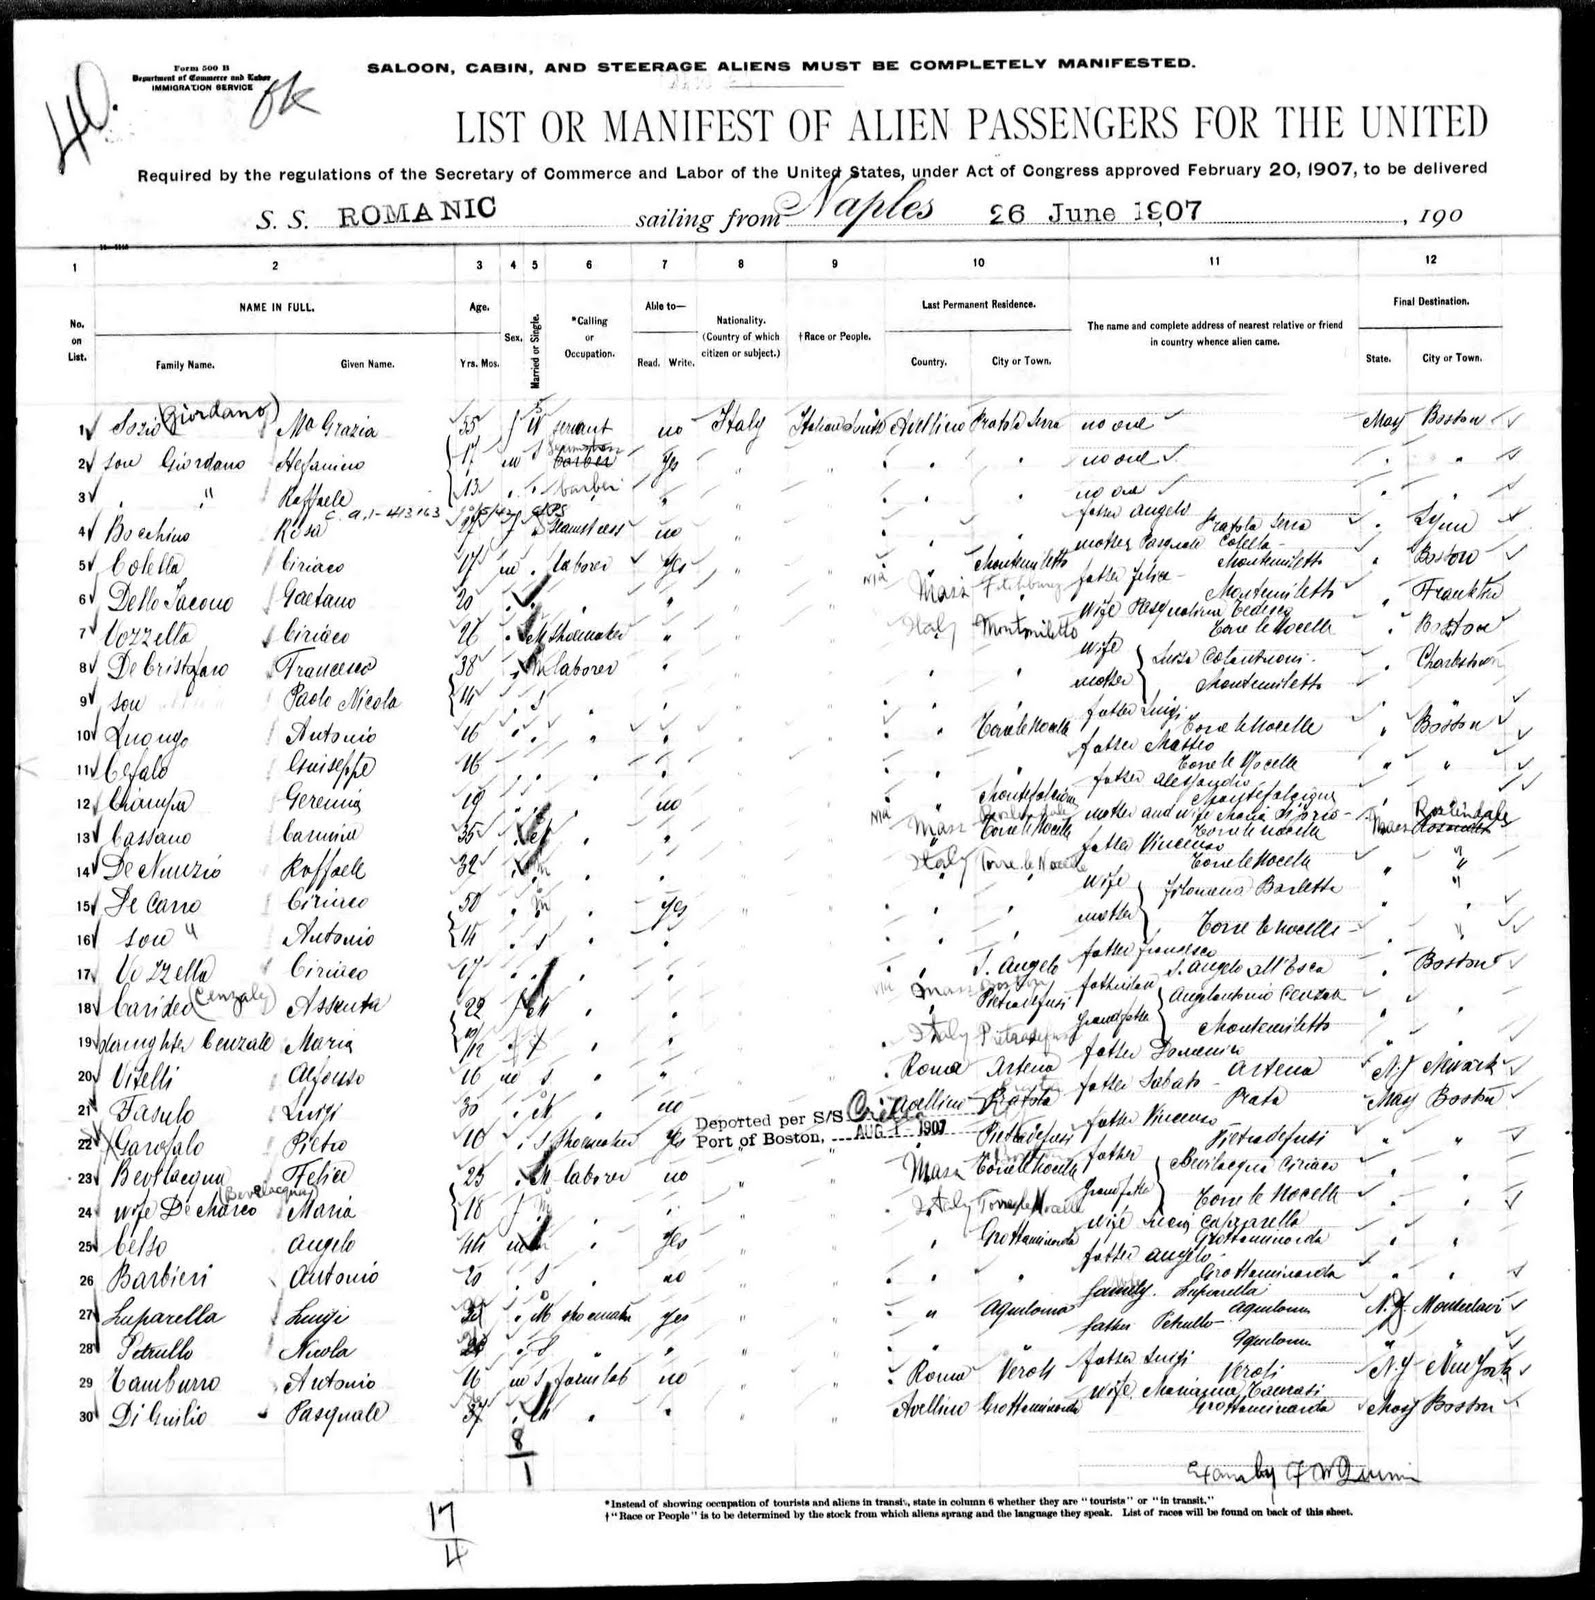 40.
Form 500 B
Department of Commerce and Labor
IMMIGRATION SERVICE
ok
SALOON, CABIN, AND STEERAGE ALIENS MUST BE COMPLETELY MANIFESTED.
LIST OR MANIFEST OF ALIEN PASSENGERS FOR THE UNITED
Required by the regulations of the Secretary of Commerce and Labor of the United States, under Act of Congress approved February 20, 1907, to be delivered
S. S. ROMANIC sailing from Naples 26 June 1907, 190
1 2 3 4 5 6 7 8 9 10 11 12
No. on List. NAME IN FULL. Family Name. Given Name. Age. Yrs. Mos. Sex. Married or Single. *Calling or Occupation. Able to— Read. Write. Nationality. (Country of which citizen or subject.) †Race or People. Last Permanent Residence. Country. City or Town. The name and complete address of nearest relative or friend in country whence alien came. Final Destination. State. City or Town.
1 Sozio (Giordano) Ma Grazia 35 f W servant no Italy Italian South Avellino Pratola Serra no one Mass Boston
2 son Giordano 17 m S barber yes " " no one "
3 " " Raffaele 13 " " barber " no one
C. A. 1-413163
4 Bocchino Rosa 27 f S seamstress no father Angelo Pratola Serra " Lynn
5 Colella Ciriaco 17 m " laborer yes " Montemiletto mother Pasquale Colella Montemiletto " Boston
6 Dello Iacono Gaetano 20 " " " Mass Fitchburg father Felice Montemiletto " Franklin
7 Vozzella Ciriaco 26 " M shoemaker " Italy Montmiletto wife Pasqualina Tedesco Torre le Nocelle " Boston
8 De Cristofaro Francesco 38 " M laborer " wife Luisa Colantuoni " Charlestown
9 son Paolo Nicola 14 " S " mother Montemiletto "
10 Luongo Antonio 16 " " " " Torre le Nocelle father Luigi Torre le Nocelle " Boston
11 Cefalo Giuseppe 16 " " " father Matteo Torre le Nocelle " "
12 Ciampa Geremia 19 " " no Montefalcione father Alessandro Montefalcione "
13 Cassano Carmine 35 " M " Mass Torre le Nocelle mother and wife Maria Torre le Nocelle Mass Roslindale
14 De Nunzio Raffaele 32 " M " Italy Torre le Nocelle father Vincenzo Torre le Nocelle " "
15 De Caro Ciriaco 50 " M " yes wife Filomena Barletta "
16 son " Antonio 14 " S " mother Torre le Nocelle "
17 Vozzella Ciriaco 17 " " " S. Angelo father Francesco S. Angelo all'Esca " Boston
18 Carideo (Cenzale) Assunta 22 f M " Mass Boston Pietradefusi father in law Angelantonio Cenzale "
19 daughter Cenzale Maria 10/12 " S " Italy Pietradefusi grandfather Montemiletto "
20 Vitelli Alfonso 16 m S " " Roma Artena father Domenico Artena N.J Newark
21 Fasulo Luigi 30 " M no Avellino father Sabato Prata Mass Boston
Deported per S/S Cretic
Port of Boston, AUG 1 - 1907
22 Garofalo Pietro 16 " S shoemaker yes Pietradefusi father Vincenzo Pietradefusi " "
23 Bevilacqua Felice 23 " M laborer no Mass Torre le Nocelle father Bevilacqua Ciriaco
24 wife De Marco (Bevelacqua) Maria 18 f M " Italy Torre le Nocelle grandfather Torre le Nocelle " "
25 Celso Angelo 44 m M " yes " Grottaminarda wife Grottaminarda " "
26 Barbieri Antonio 20 " S " no " " father Angelo Grottaminarda " "
27 Luparella Luigi " M shoemaker yes " Aquilonia family Luparella Aquilonia N.J. Montclair
28 Petrullo Nicola " S " " " father Petrullo Aquilonia " "
29 Tamburro Antonio 16 m S farm lab no Roma Veroli father Luigi Veroli N.Y New York
30 Di Guilio Pasquale 37 " M " " Avellino Grottaminarda wife Marianna Grottaminarda Mass Boston
8/1
17/4
Exam by F W Quinn
*Instead of showing occupation of tourists and aliens in transit, state in column 6 whether they are "tourists" or "in transit."
†"Race or People" is to be determined by the stock from which aliens sprang and the language they speak. List of races will be found on back of this sheet.